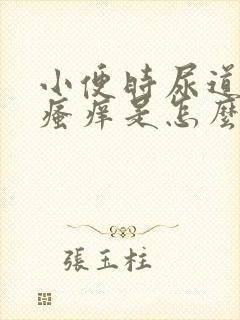 小便時尿道
瘙痒是怎麼
張玉柱